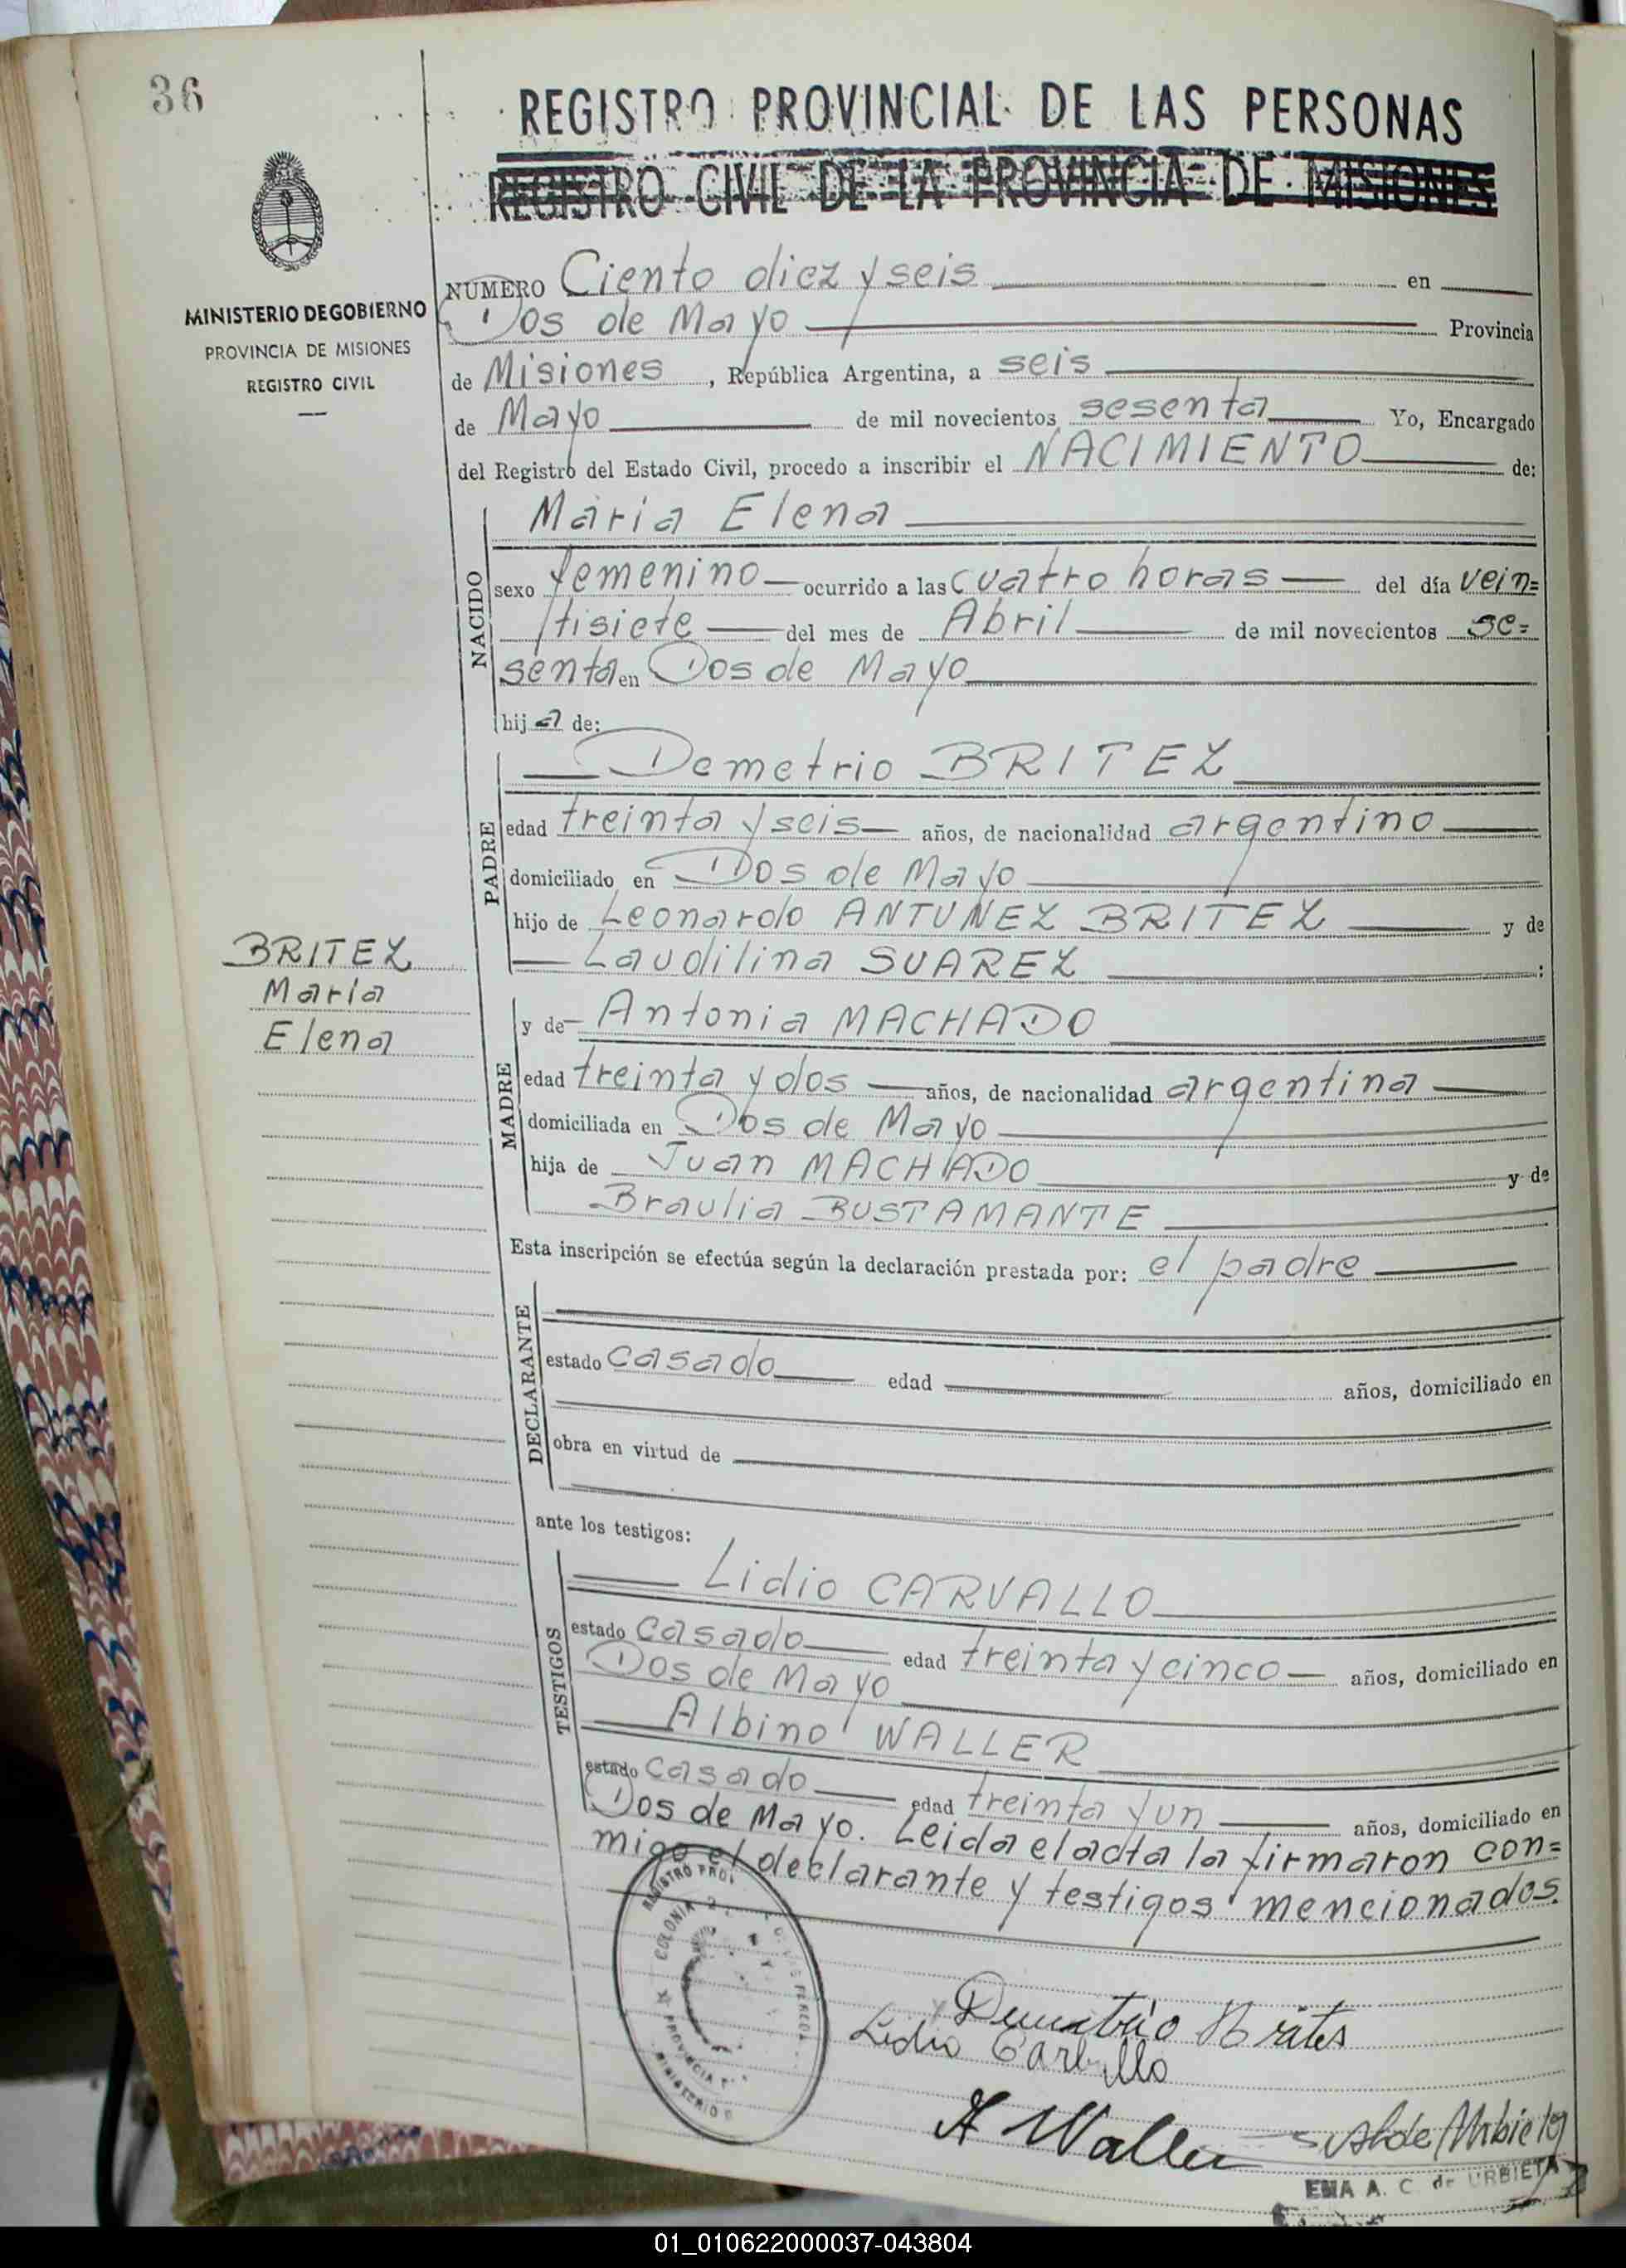 36
REGISTRO PROVINCIAL DE LAS PERSONAS
REGISTRO CIVIL DE LA PROVINCIA DE MISIONES
MINISTERIO DE GOBIERNO
PROVINCIA DE MISIONES
REGISTRO CIVIL
NÚMERO Ciento diez y seis en
Dos de Mayo Provincia
de Misiones, República Argentina, a seis
de Mayo de mil novecientos sesenta Yo, Encargado
del Registro del Estado Civil, procedo a inscribir el NACIMIENTO de:
NACIDO
Maria Elena
sexo femenino ocurrido a las cuatro horas del día vein=
tisiete del mes de Abril de mil novecientos se=
senta en Dos de Mayo
hija de:
PADRE
Demetrio BRITEZ
edad treinta y seis años, de nacionalidad argentino
domiciliado en Dos de Mayo
hijo de Leonardo ANTUNEZ BRITEZ y de
Laudilina SUAREZ :
BRITEZ
Maria
Elena
MADRE
y de Antonia MACHADO
edad treinta y dos años, de nacionalidad argentina
domiciliada en Dos de Mayo
hija de Juan MACHADO y de
Braulia BUSTAMANTE
Esta inscripción se efectúa según la declaración prestada por: el padre
DECLARANTE
estado casado edad años, domiciliado en
obra en virtud de
ante los testigos:
TESTIGOS
Lidio CARVALLO
estado casado edad treinta y cinco años, domiciliado en
Dos de Mayo
Albino WALLER
estado casado edad treinta y un años, domiciliado en
Dos de Mayo. Leida el acta la firmaron con=
migo el declarante y testigos mencionados.
REGISTRO PROV
COLONIA 2
PROVINCIA
MINISTERIO
Demetrio Brites
Lidio Carballo
A Waller
de Urbieta
EMA A. C. de URBIETA
01_010622000037-043804